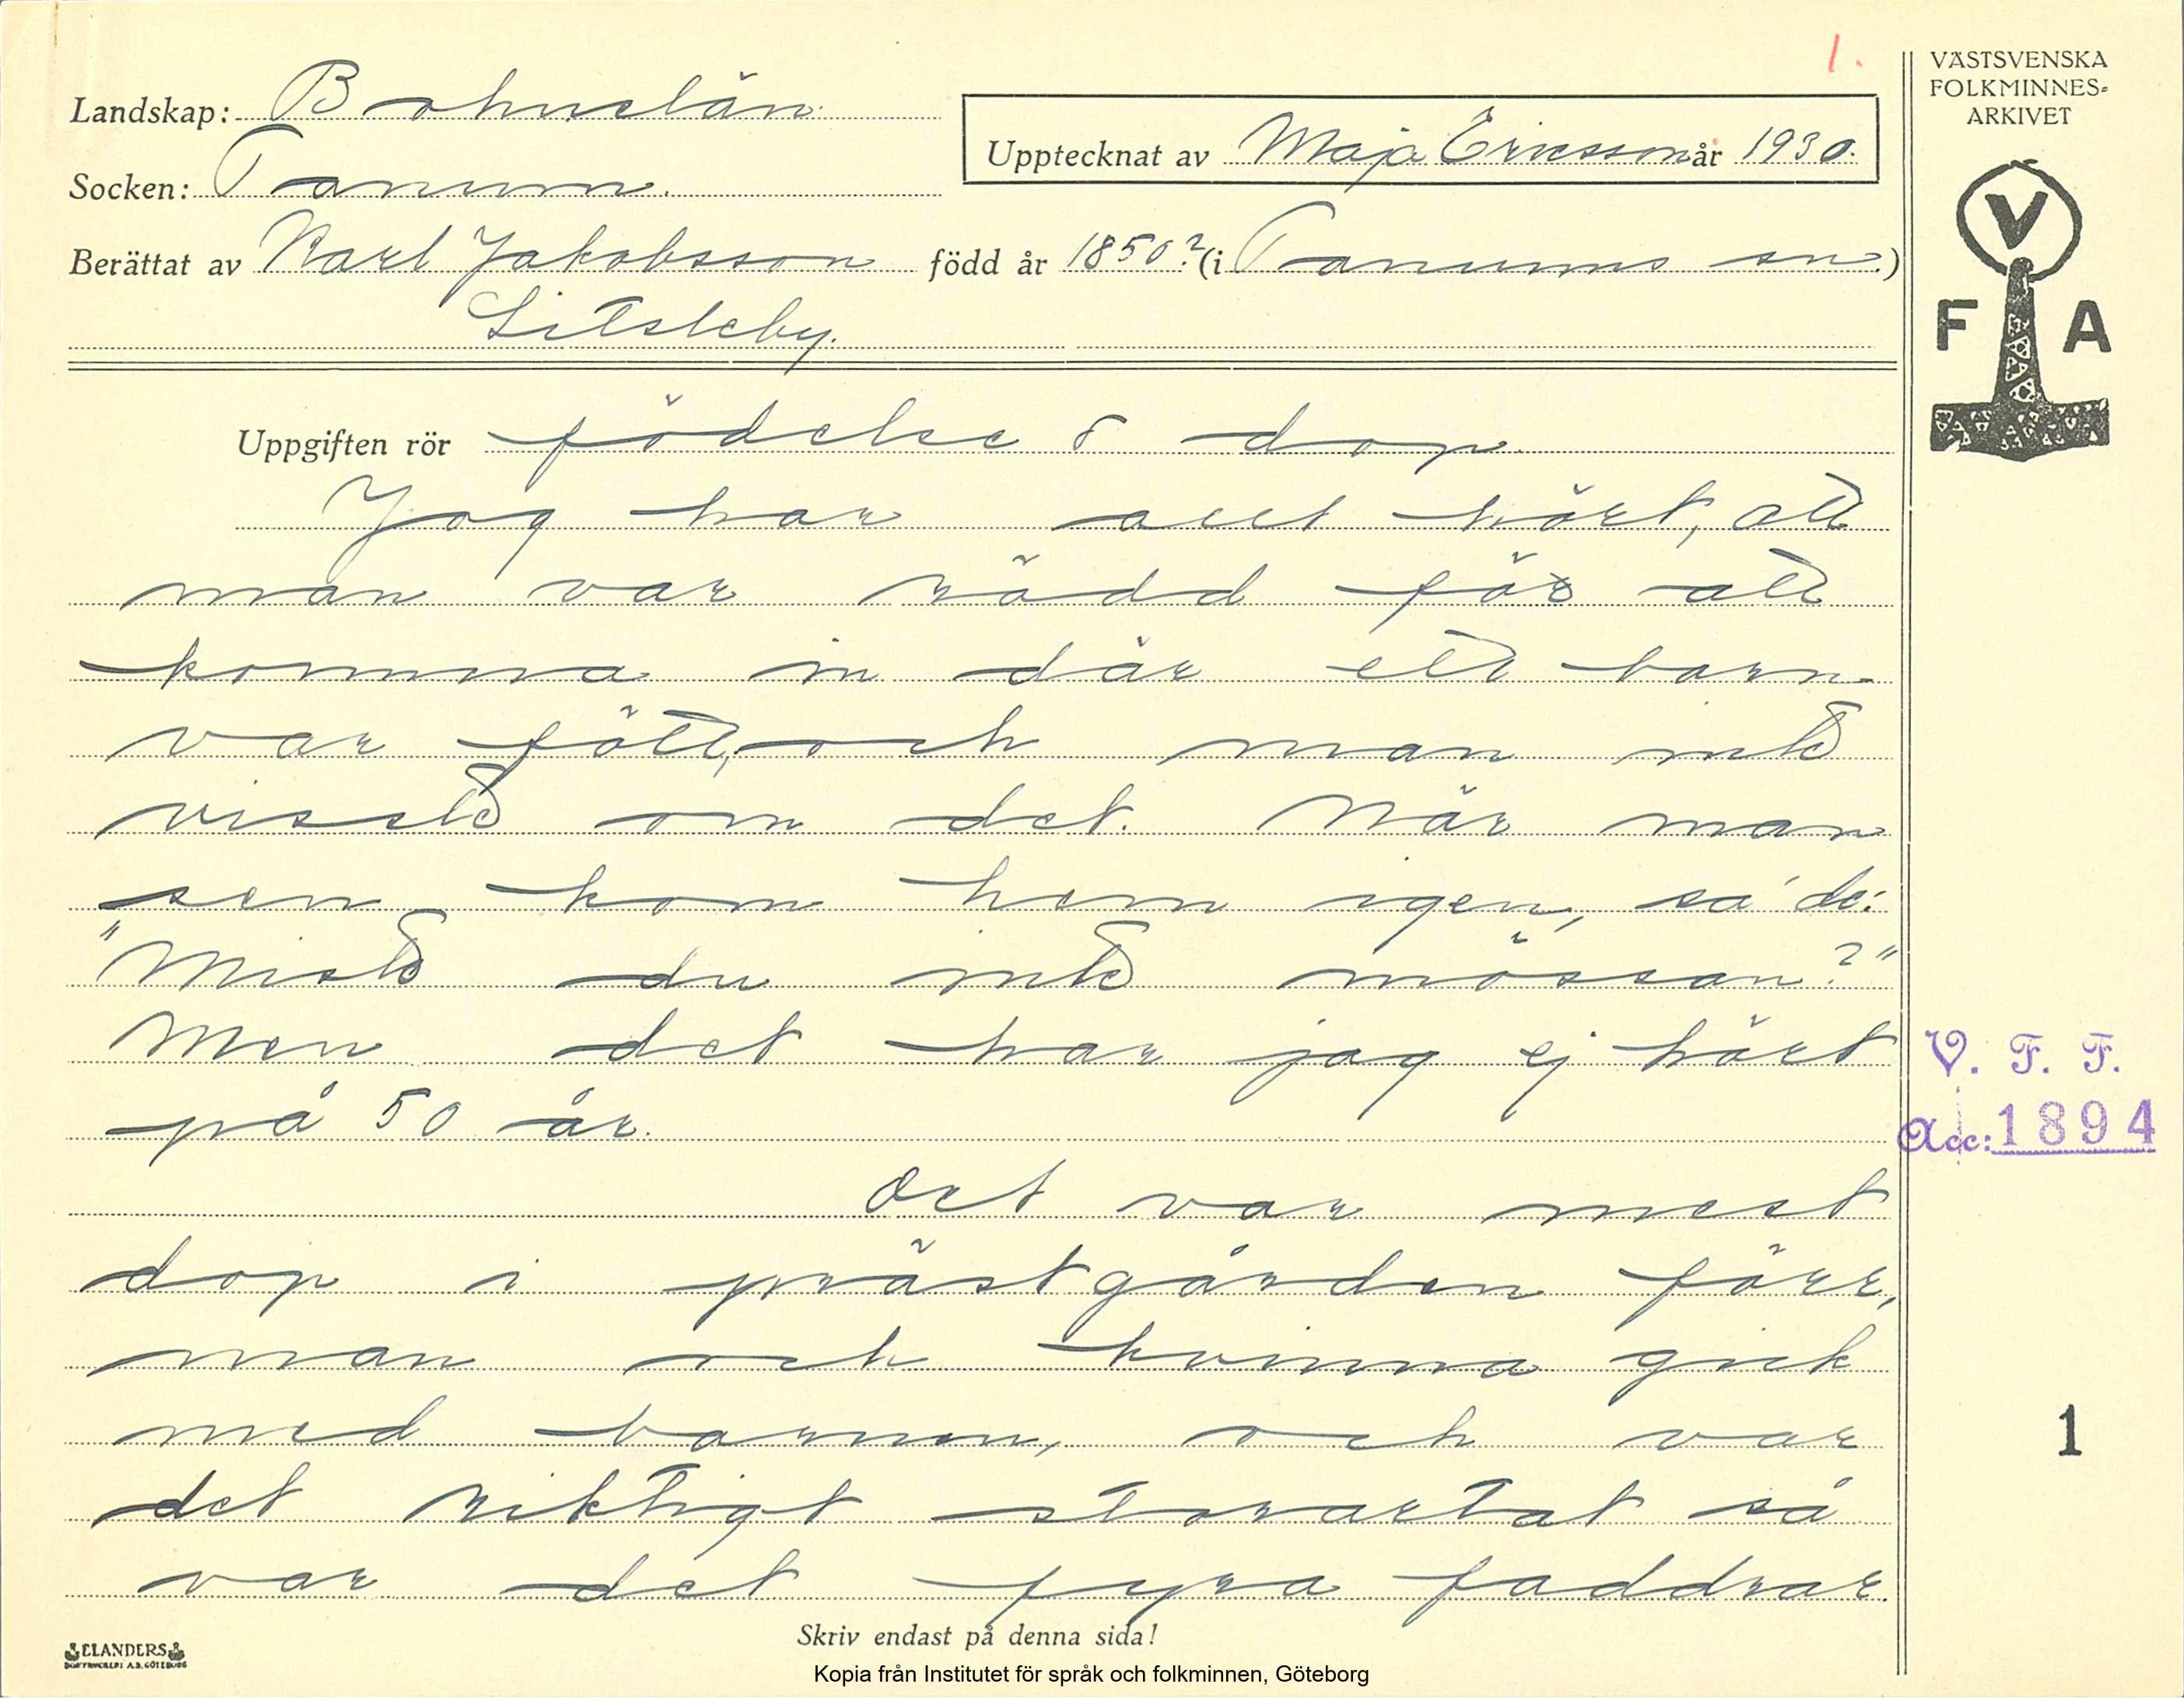 1.
VÄSTSVENSKA
FOLKMINNES-
ARKIVET
Landskap: Bohuslän
Upptecknat av Maja Ericsson år 1930.
Socken: Tanum.
Berättat av Karl Jakobsson född år 1850? (i Tanums sn.)
Litsleby.
V
F A
Uppgiften rör födelse & dop
Jag har allt hört, att
man var rädd för att
komma in där ett barn
var fött, och man inte
visste om det. När man
sen kom hem igen, sa' de:
"Miste du inte mössan?"
Men det har jag ej hört
på 50 år.
V. F. F.
Acc: 1894
Det var mest
dop i prästgården förr,
man och kvinna gick
med barnen, och var
1
det riktigt storartat så
var det fyra faddrar.
Skriv endast på denna sida!
ELANDERS
BOKTRYCKERI A.B. GÖTEBORG
Kopia från Institutet för språk och folkminnen, Göteborg